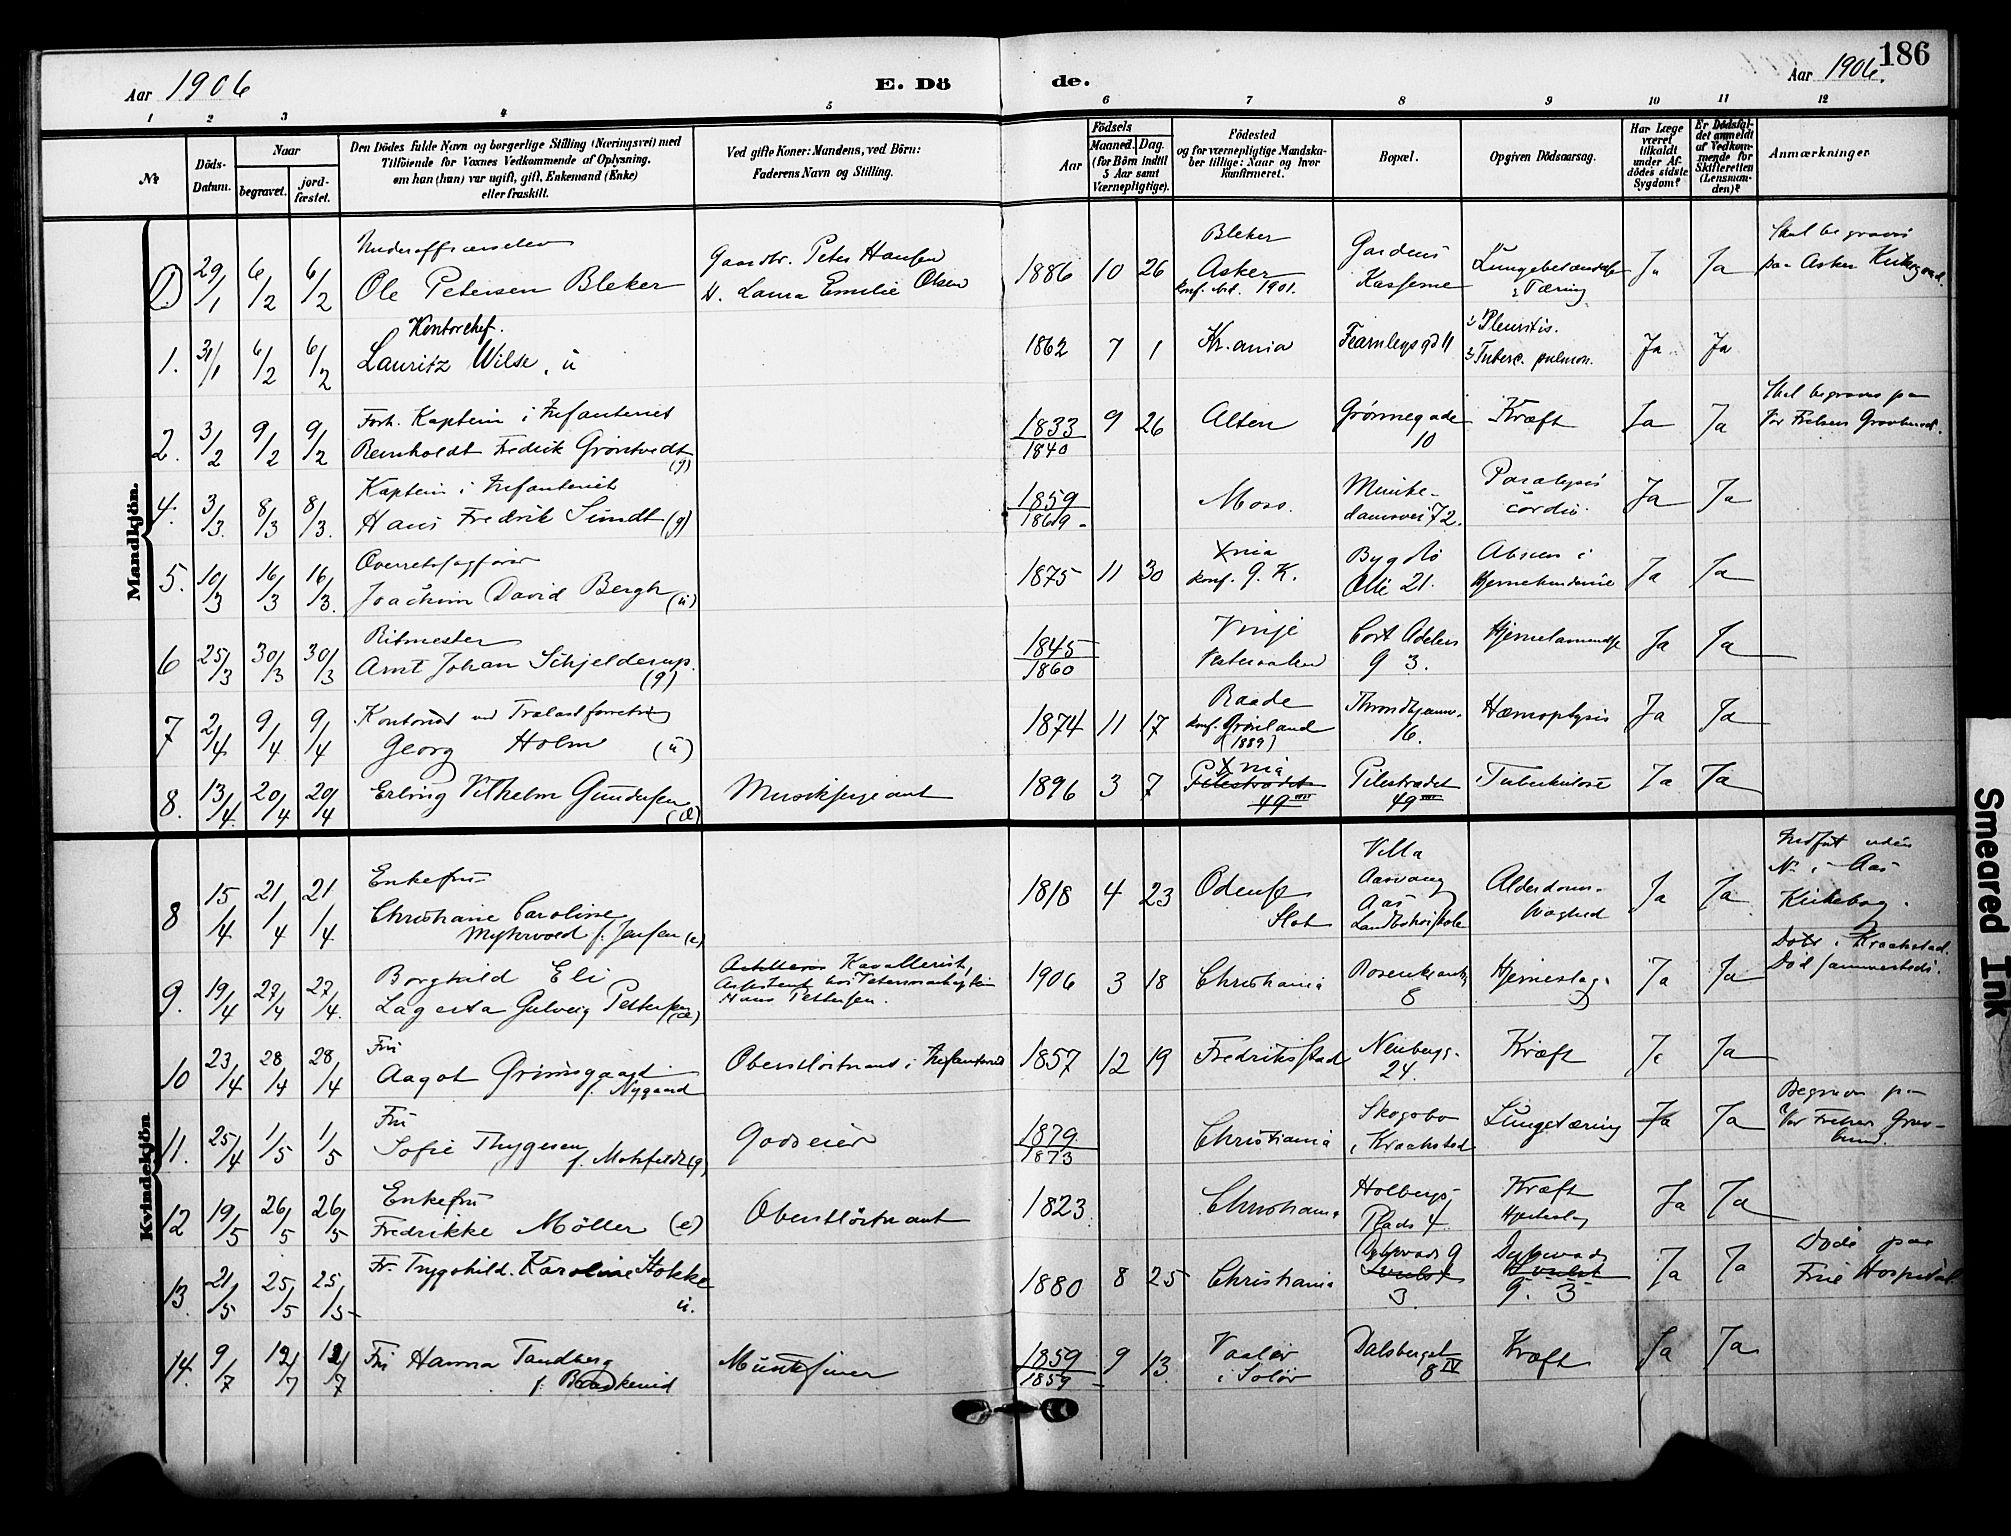 186
Aar 1906
E. Dö
de.
Aar 1906.
1 2 3 4 5 6 7 8 9 10 11 12
№
Döds-Datum.
Naar
begravet.
jord-fæstet.
Den Dödes fulde Navn og borgerlige Stilling (Næringsvei) med
Tilföiende for Voxnes Vedkommende af Oplysning.
om han (hun) var ugift, gift, Enkemand (Enke)
eller fraskilt.
Ved gifte Koner: Mandens, ved Börn:
Faderens Navn og Stilling.
Födsels
Aar
Maaned.
Dag.
(for Börn indtil
5 Aar samt
Værnepligtige).
Födested
og for værnepligtige Mandska-
ber tillige: Naar og hvor
konfirmeret.
Bopæl.
Opgiven Dödsaarsag.
Har Læge
været
tilkaldt
under Af-
dödes sidste
Sygdom?
Er Dödsfal-
det anmeldt
af Vedkom-
mende for
Skifteretten
(Lensman-
den)?
Anmærkninger
Mandkjön.
1. 29/1 6/2 6/2 Underofficerselev
Ole Petersen Bleker
Gaardbr. Peter Hansen
Laura Emilie Olsen
1886 10 26 Bleker
Asker
konf. 1901.
Gardens
Kaserne
Tæring
Ja Ja
Skal begraves
paa Asker Kirkegaard.
1. 31/1 6/2 6/2 Kontorchef.
Lauritz Wilse, u
1862 7 1 Kr.ania Fearnleysgd 11
1) Pleuritis.
2) Tuberc. pulmon. Ja Ja
2. 3/2 9/2 9/2 Forh. Kaptein i Infanteriet
Reinholdt Fredrik Grøntvedt (g)
1833 9 26
1840
Alten Grønnegade
10
Kræft Ja Ja
Skal begraves paa
Vor Frelsers Gravlund.
4. 3/3. 8/3 8/3. Kaptein i Infanteriet
Hans Fredrik Sundt (g)
1859
1869
Moss. Munke-
damsvei 72.
Paralysis
cordis. Ja Ja
5. 10/3 16/3 16/3. Overretssagfører
Joachim David Bergh (u)
1875 11 30 Xnia
konf. G. K.
Bygdø
Allé 21.
Absces i
Hjernehinderne Ja Ja
6 25/3 30/3 30/3 Ritmester
Arnt Johan Schjelderup.
(g)
1845
1860
Vinje
Vesteraalen
Cort Adelers
g 3.
Ja Ja
7 2/4 9/4 9/4 Kontorist ved Trælastforretning
Georg Holm (u)
1874 11 17 Raade
konf. Grønland
(1889)
Throndhjemsv.
16.
Hæmoptysis Ja Ja
8. 13/4. 20/4 20/4 Erling Vilhelm Gundersen
Musiksergeant
1896 3 7 Xnia
Pilestrædet
49
Pilestrædet
49
Tuberkulose Ja Ja
Kvindekjön
8 15/4 21/4 21/4 Enkefru
Christiane Caroline
Myhrvold f. Jensen (e)
1818 4 23 Odense
Slot
Villa
Aasvang
Aas
Landbohøiskole
Alderdoms-
svaghed Ja Ja
Indført uden
N. i Aas
Kirkebog.
9. 19/4 27/4 27/4. Borghild Eli
Lagerta Gulveig Pettersen
Kavallerist,
Hans Pettersen.
1906 3 18 Christiania Rosenkrantz
8
Hjerneslag. Ja Ja
Død sammesteds.
10 23/4 28/4 28/4 Fru
Aagot Grimsgaard
f. Nygaard
Oberstløitnant i Infanteriet
1857 12 19 Fredriksstad Neubergg.
24.
Kræft Ja Ja
11. 25/4 1/5 1/5 Fru
Sofie Thygesen
f. Motzfeldt (g)
Godseier
1879
1873
Christiania Skogsbo
i Kraakstad
Lungetæring Ja Ja
Begraves paa
Vor Frelsers Grav-
lund.
12 19/5 26/5 26/5 Enkefru
Fredrikke Möller (e)
Oberstlöitnant
1823. Christiania Holbergs-
Plads 4.
Kræft
Ja Ja
13. 21/5 25/5 25/5 Fr. Trygohild. Karoline Stokke
u.
1880 8 25 Christiania Dybwads g
3
Dybwads
g. 3
Ja Ja
Døde paa
Frue Hospital
14. 9/7 12/7 12/7 Fru Hanna Tandberg
f.
1859 9 13.
1859
Vaaler
i Solør
Dalsberget
8 IV
Kræft Ja Ja
Smeared Ink